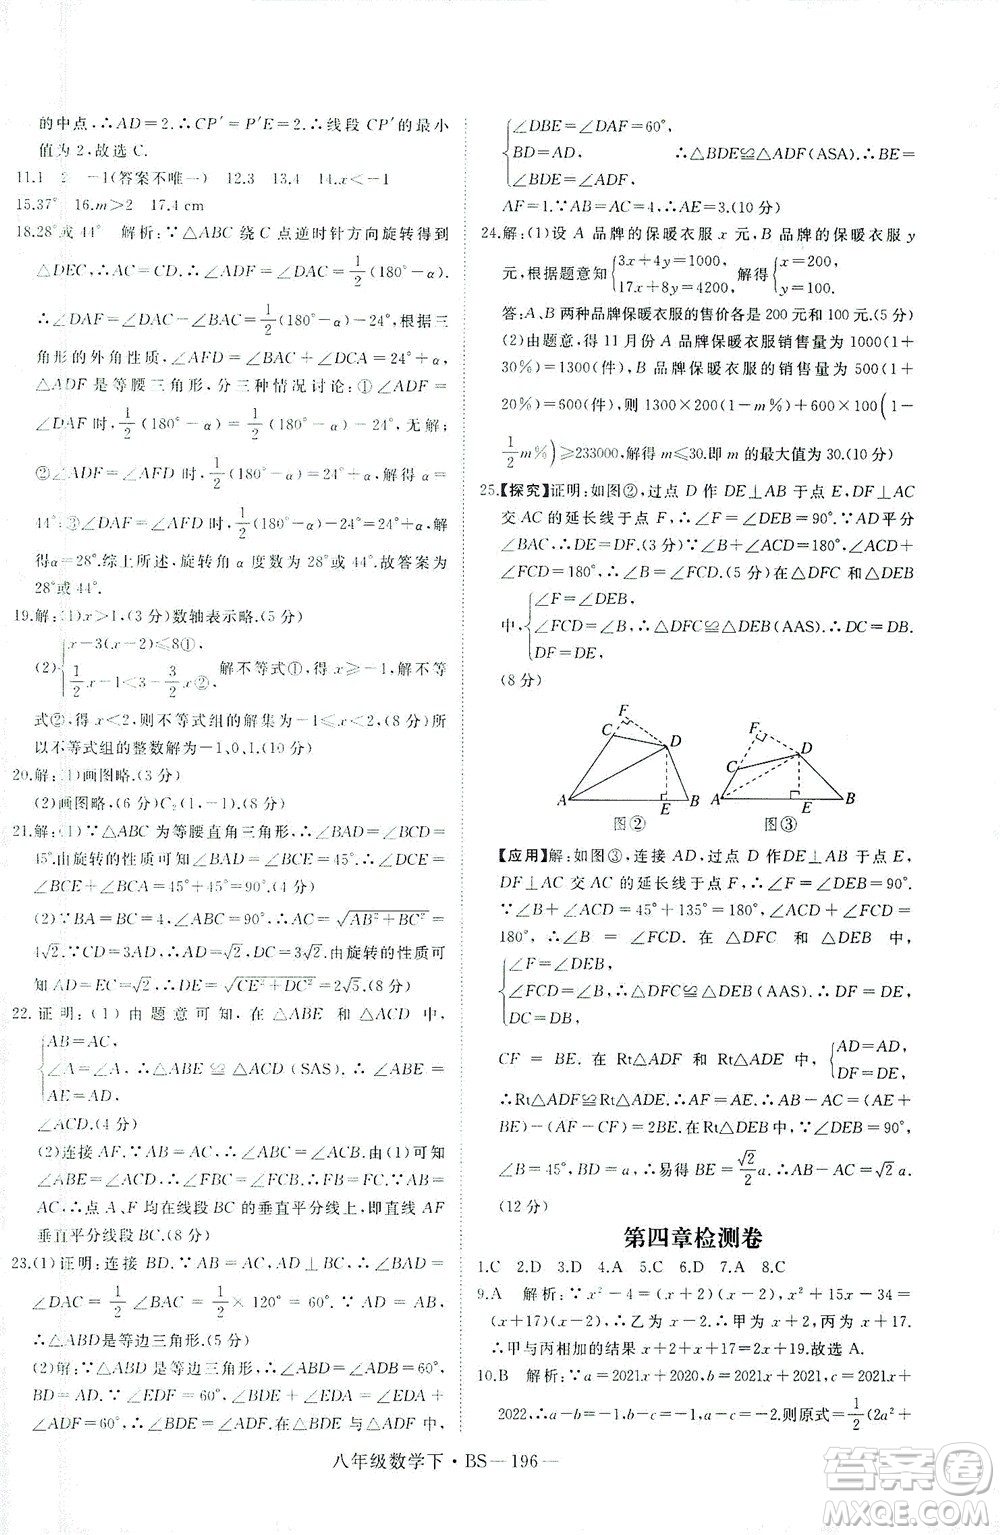 的中点,∴AD=2.∴CP′=P′E=2.∴线段CP′的最小
值为2,故选C.
11.1 2 -1(答案不唯一) 12.3 13.4 14.x<-1
15.37° 16.m>2 17.4 cm
18.28°或44° 解析:∵△ABC绕C点逆时针方向旋转得到
△DEC,∴AC=CD.∴∠ADF=∠DAC=1/2(180°-α).
∴∠DAF=∠DAC-∠BAC=1/2(180°-α)-24°.根据三
角形的外角性质,∠AFD=∠BAC+∠DCA=24°+α.
△ADF是等腰三角形,分三种情况讨论:①∠ADF=
∠DAF时,1/2(180°-α)=1/2(180°-α)-24°,无解;
②∠ADF=∠AFD时,1/2(180°-α)=24°+α,解得α=
44°;③∠DAF=∠AFD时,1/2(180°-α)-24°=24°+α,解
得α=28°.综上所述,旋转角α度数为28°或44°.故答案为
28°或44°.
19.解:(1)x>1,(3分)数轴表示略.(5分)
(2){x-3(x-2)≤8①,
1/2x-1<3-3/2x②, 解不等式①,得x≥-1,解不等
式②,得x<2,则不等式组的解集为-1≤x<2.(8分)所
以不等式组的整数解为-1,0,1.(10分)
20.解:(1)画图略.(3分)
(2)画图略,(6分)C₂(1,-1).(8分)
21.解:(1)∵△ABC为等腰直角三角形,∴∠BAD=∠BCD=
45°.由旋转的性质可知∠BAD=∠BCE=45°.∴∠DCE=
∠BCE+∠BCA=45°+45°=90°.(4分)
(2)∵BA=BC=4,∠ABC=90°,∴AC=√(AB²+BC²)=
4√2.∵CD=3AD,∴AD=√2,DC=3√2.由旋转的性质可
知AD=EC=√2,∴DE=√(CE²+DC²)=2√5.(8分)
22.证明:(1)由题意可知,在△ABE和△ACD中,
{AB=AC,
∠A=∠A,∴△ABE≌△ACD(SAS).∴∠ABE=
AE=AD,
∠ACD.(4分)
(2)连接AF.∵AB=AC,∴∠ABC=∠ACB.由(1)可知
∠ABE=∠ACD,∴∠FBC=∠FCB,∴FB=FC.∵AB=
AC,∴点A、F均在线段BC的垂直平分线上,即直线AF
垂直平分线段BC.(8分)
23.(1)证明:连接BD.∵AB=AC,AD⊥BC,∴∠BAD=
∠DAC=1/2∠BAC=1/2×120°=60°.∵AD=AB,
∴△ABD是等边三角形.(5分)
(2)解:∵△ABD是等边三角形,∴∠ABD=∠ADB=60°,
BD=AD.∵∠EDF=60°,∴∠EDF-∠EDA=∠ADB-
∠EDA.∴∠ADF=∠BDE.在△BDE与△ADF中,
{∠DBE=∠DAF=60°,
BD=AD, ∴△BDE≌△ADF(ASA).∴BE=
∠BDE=∠ADF,
AF=1.∵AB=AC=4,∴AE=3.(10分)
24.解:(1)设A品牌的保暖衣服x元,B品牌的保暖衣服y
元,根据题意知{3x+4y=1000, 解得{x=200,
17x+8y=4200, y=100.
答:A、B两种品牌保暖衣服的售价各是200元和100元.(5分)
(2)由题意,得11月份A品牌保暖衣服销售量为1000(1+
30%)=1300(件),B品牌保暖衣服的销售量为500(1+
20%)=600(件),则1300×200(1-m%)+600×100(1-
1/2m%)≥233000.解得m≤30.即m的最大值为30.(10分)
25.【探究】证明:如图②,过点D作DE⊥AB于点E,DF⊥AC
交AC的延长线于点F,∴∠F=∠DEB=90°.∵AD平分
∠BAC,∴DE=DF.(3分)∵∠B+∠ACD=180°,∠ACD+
∠FCD=180°,∴∠B=∠FCD.(5分)在△DFC和△DEB
中,{∠F=∠DEB,
∠FCD=∠B,∴△DFC≌△DEB(AAS).∴DC=DB.
DF=DE,
(8分)
F
C
D
A
E
B
图②
F
C
D
A
E
B
图③
【应用】解:如图③,连接AD,过点D作DE⊥AB于点E,
DF⊥AC交AC的延长线于点F,∴∠F=∠DEB=90°.
∵∠B+∠ACD=45°+135°=180°,∠ACD+∠FCD=
180°,∴∠B=∠FCD.在△DFC和△DEB中,
{∠F=∠DEB,
∠FCD=∠B, ∴△DFC≌△DEB(AAS).∴DF=DE,
DC=DB,
CF=BE.在Rt△ADF和Rt△ADE中,{AD=AD,
DF=DE,
∴Rt△ADF≌Rt△ADE.∴AF=AE.∴AB-AC=(AE+
BE)-(AF-CF)=2BE.在Rt△DEB中,∵∠DEB=90°,
∠B=45°,BD=a,∴易得BE=√2/2a.∴AB-AC=√2a.
(12分)
第四章检测卷
1.C 2.D 3.D 4.A 5.C 6.D 7.A 8.C
9.A 解析:∵x²-4=(x+2)(x-2),x²+15x-34=
(x+17)(x-2),∴乙为x-2.∴甲为x+2,丙为x+17.
∴甲与丙相加的结果x+2+x+17=2x+19.故选A.
10.B 解析:∵a=2021x+2020,b=2021x+2021,c=2021x+
2022,∴a-b=-1,b-c=-1,a-c=-2.则原式=1/2(2a²+
八年级数学下·BS—196—
答案圈
MXQE.COM